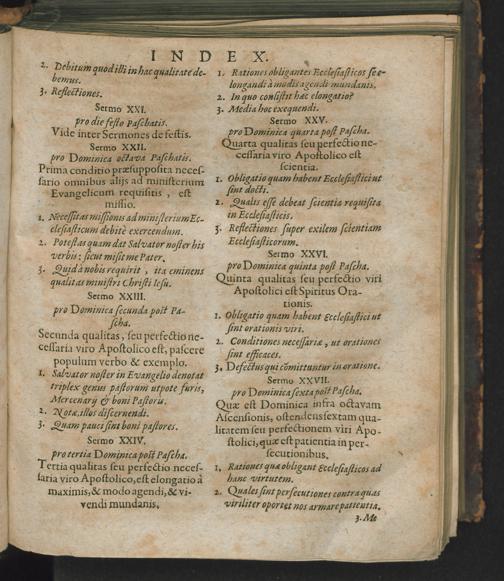 INDEX.
2. Debitum quod illi in hac qualitate de-
bemus.
3. Reflectiones.
Sermo XXI.
pro die festo Paschatis.
Vide inter Sermones de festis.
Sermo XXII.
pro Dominica octava Paschatis.
Prima conditio præsupposita neces-
sario omnibus alijs ad ministerium
Evangelicum requisitis, est
missio.
1. Necessitas missionis ad ministerium Ec-
clesiasticum debitè exercendum.
2. Potestas quam dat Salvator noster his
verbis: sicut misit me Pater.
3. Quid à nobis requirit, ita eminens
qualitas ministri Christi Iesu.
Sermo XXIII.
pro Dominica secunda post Pa-
scha.
Secunda qualitas, seu perfectio ne-
cessaria viro Apostolico est, pascere
populum verbo & exemplo.
1. Salvator noster in Evangelio denotat
triplex genus pastorum utpote furis,
Mercenarij & boni Pastoris.
2. Notæ illos discernendi.
3. Quam pauci sint boni pastores.
Sermo XXIV.
pro tertia Dominica post Pascha.
Tertia qualitas seu perfectio neces-
saria viro Apostolico, est elongatio à
maximis, & modo agendi, & vi-
vendi mundanis.
1. Rationes obligantes Ecclesiasticos se e-
longandi à modis agendi mundanis.
2. In quo consistit hæc elongatio?
3. Media hoc exequendi.
Sermo XXV.
pro Dominica quarta post Pascha.
Quarta qualitas seu perfectio ne-
cessaria viro Apostolico est
scientia.
1. Obligatio quam habent Ecclesiastici ut
sint docti.
2. Qualis esse debeat scientia requisita
in Ecclesiasticis.
3. Reflectiones super exilem scientiam
Ecclesiasticorum.
Sermo XXVI.
pro Dominica quinta post Pascha.
Quinta qualitas seu perfectio viri
Apostolici est Spiritus Ora-
tionis.
1. Obligatio quam habent Ecclesiastici ut
sint orationis viri.
2. Conditiones necessariæ, ut orationes
sint efficaces.
3. Defectus qui cōmittuntur in oratione.
Sermo XXVII.
pro Dominica sexta post Pascha.
Quæ est Dominica infra octavam
Ascensionis, ostendens sextam qua-
litatem seu perfectionem viri Apo-
stolici, quæ est patientia in per-
secutionibus.
1. Rationes quæ obligant Ecclesiasticos ad
hanc virtutem.
2. Quales sint persecutiones contra quas
viriliter oportet nos armare patientia.
3. Me